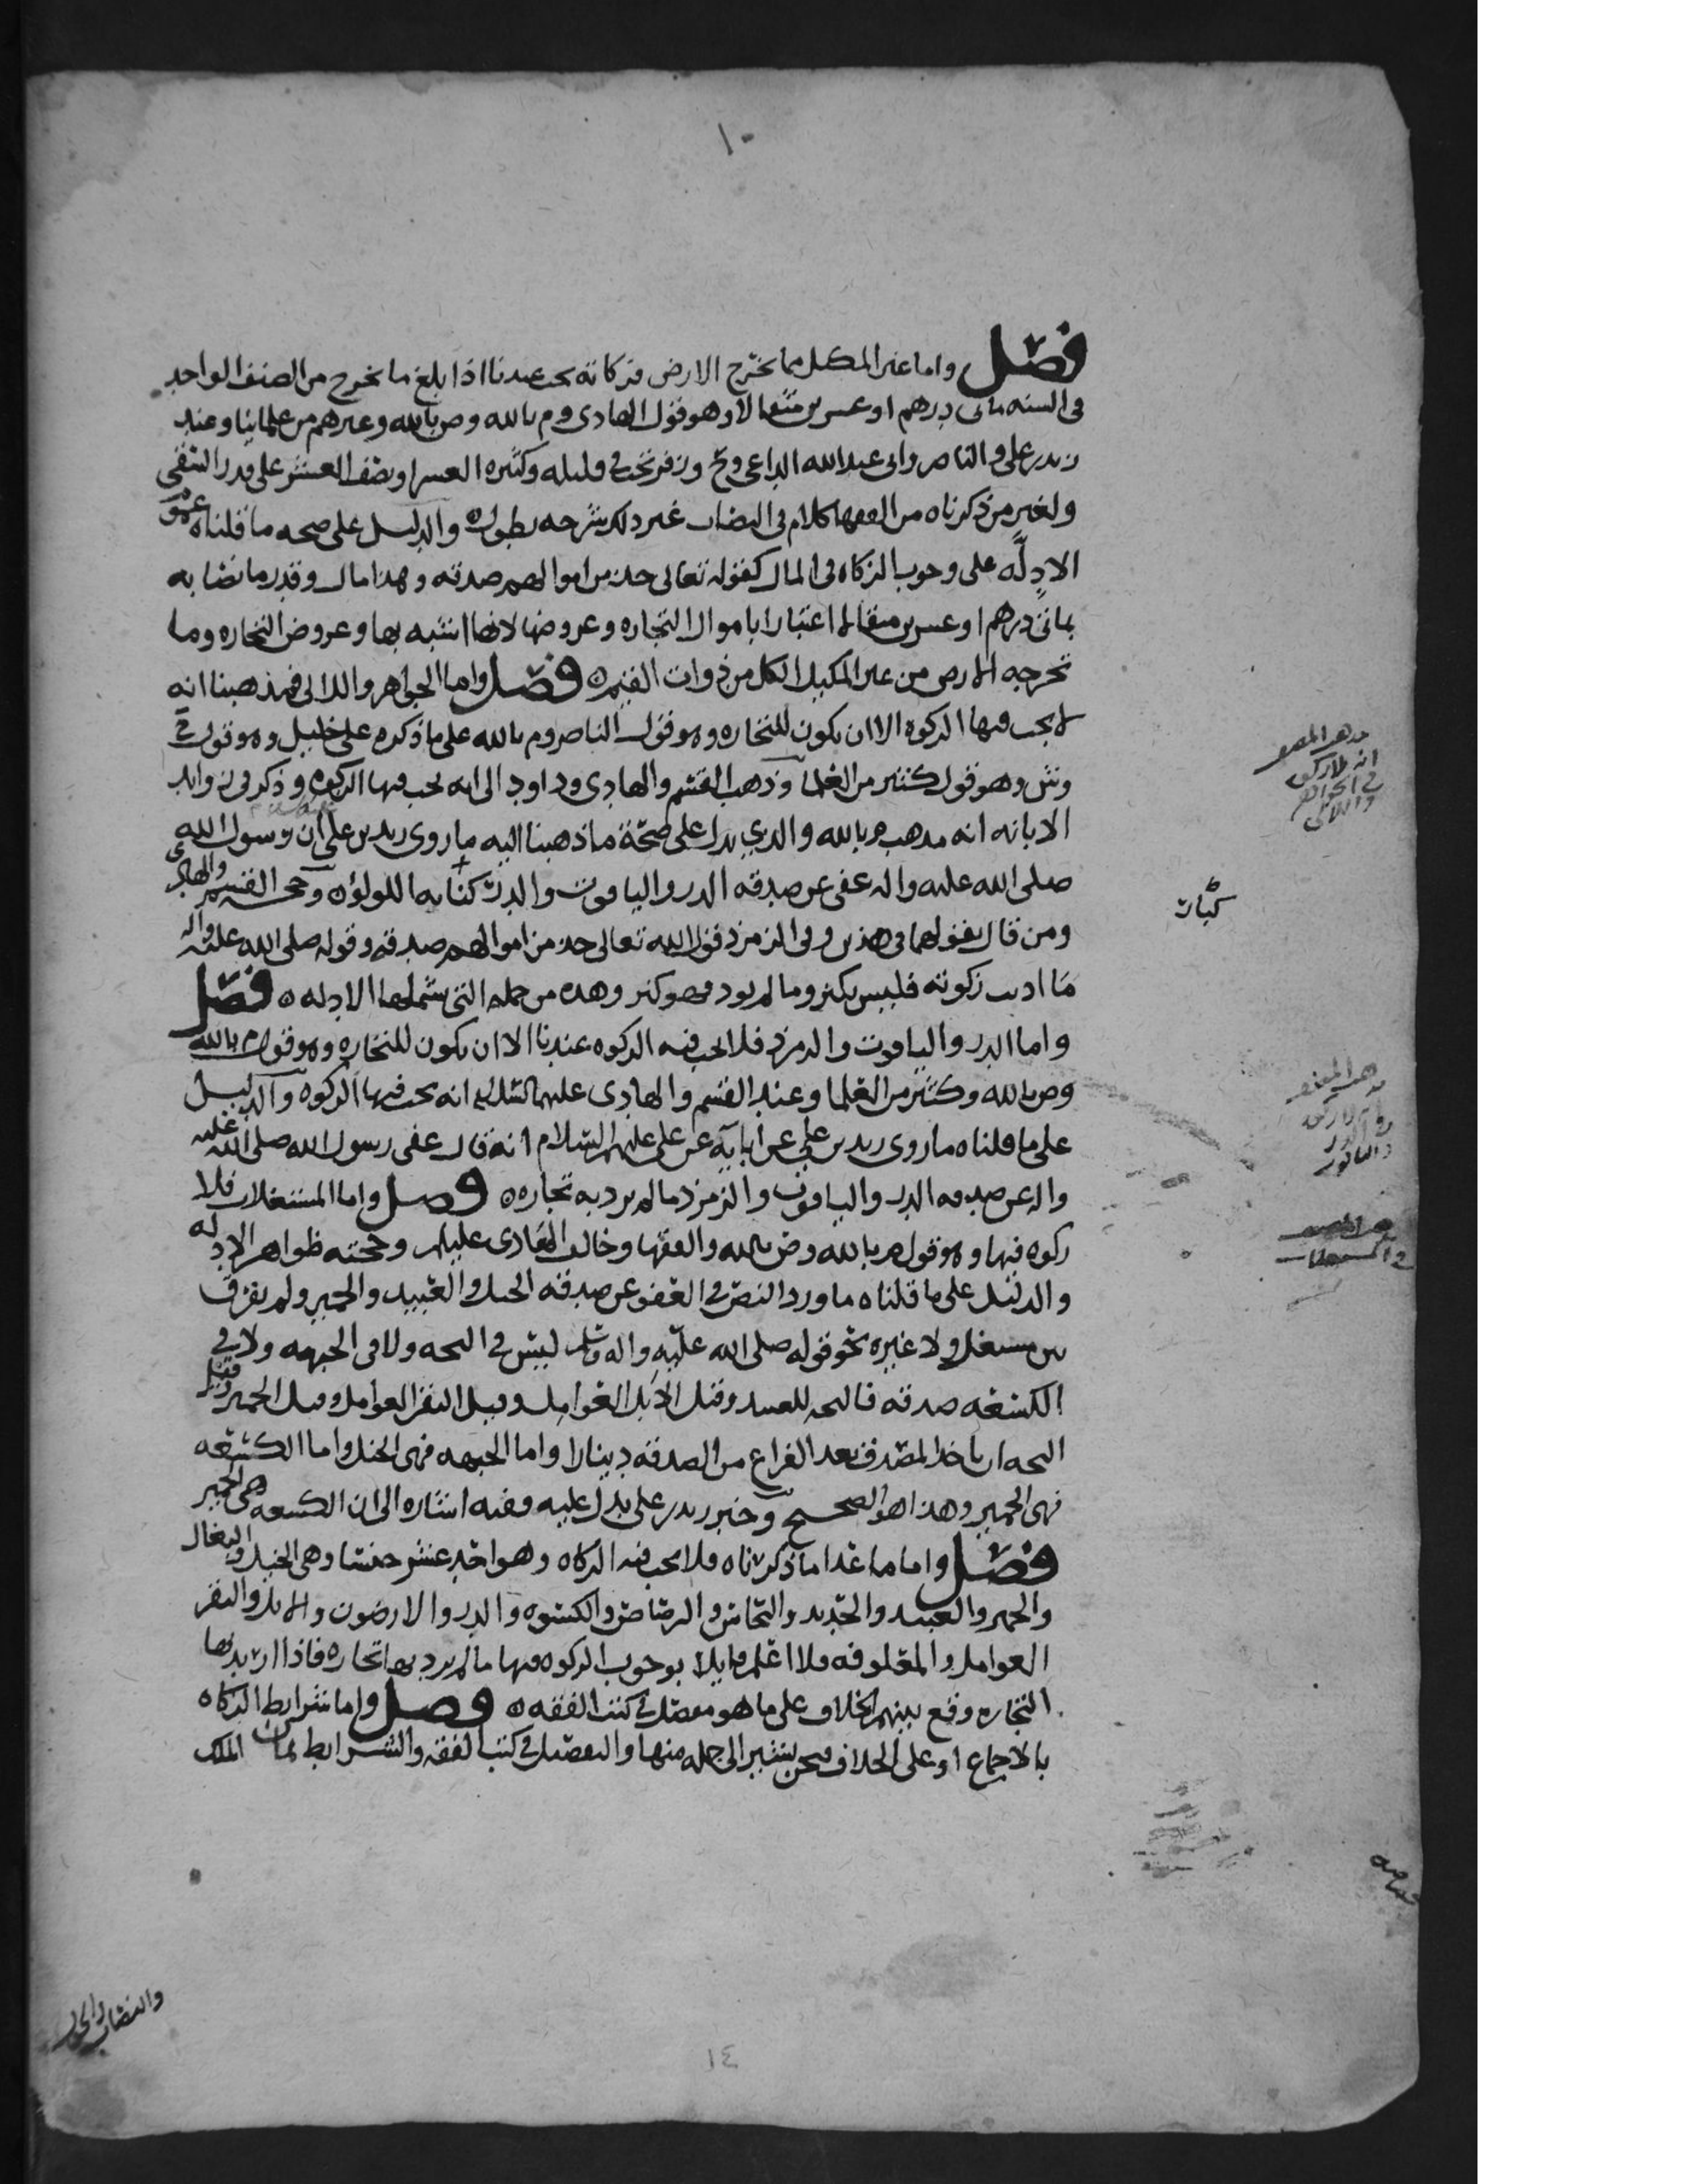 ١٠
فصل واما غير المكيل مما تخرج الارض فزكاته تجب عندنا اذا بلغ ما يخرج من الصنف الواحد
في السنه مائتي درهم او عشرين مثقالا وهو قول الهادي وم بالله وص بالله وغيرهم من علمائنا وعند
زيد بن علي والناصر وابي عبدالله الداعي وح وزفر تجب في قليله وكثيره العشر او نصف العشر على قدر السقي
ولغير من ذكرناه من الفقها كلام في النصاب غير ذلك شرحه يطول ه والدليل على صحه ما قلناه عموم
الادلّه على وجوب الزكاه في المال كقوله تعالى خذ من اموالهم صدقه وهذا مال وقدرنا نصابه
بمائتي درهم او عشرين مثقالا اعتبارا باموال التجاره وعروضها لانها اشبه بها وعروض التجاره وما
تخرجه الارض من غير المكيل الكل من ذوات القيم ه فصل واما الجواهر واللالى فمذهبنا انه
لا يجب فيها الزكوه الا ان يكون للتجاره وهو قول الناصر وم بالله على ما ذكره علي خليل وهو قول ح
وش وهو قول كثير من العلما وذهب القسم والهادي وداود الى انه يجب فيها الزكوه وذكر في زوايد
الابانه انه مذهب م بالله والذي يدل على صحّة ما ذهبنا اليه ما روى زيد بن علي ان رسول الله
صلى الله عليه واله عفى عن صدقه الدر والياقوت والدرّ كنايه اللولؤ ه وحجه القسم والهادي
ومن قال بقولهما في هذين وفي الزمرذ قول الله تعالى خذ من اموالهم صدقه وقوله صلى الله عليه واله
ما اديت زكوته فليس بكنز وما لم يود فهو كنز وهذه من جمله التي يشملها الادله ه فصل
واما الدر والياقوت والزمرذ فلا تجب فيه الزكوه عندنا الا ان يكون للتجاره وهو قول م بالله
وص بالله وكثير من العلما وعند القسم والهادي عليهما السلام انه تجب فيها الزكوه والدليل
على ما قلناه ما روى زيد بن علي عن ابايه عن علي عليهم السلام انه قال عفى رسول الله صلى الله عليه
واله عن صدقه الدر والياقوت والزمرذ ما لم يرد به تجاره ه فصل واما المستغلات فلا
زكوه فيها وهو قول م بالله وص بالله والفقها وخالف الهادي عليلم وحجته ظواهر الادله
والدليل على ما قلناه ما ورد النص في العفو عن صدقه الخيل والعبيد والحمير ولم يفرق
بين مستغل ولا غيره نحو قوله صلى الله عليه واله وسلم ليس في النخه ولا في الجبهه ولا في
الكسعه صدقه فالنخه للعبيد وقيل الابل العوامل وقيل البقر العوامل وقيل الحمير وقيل
النخه ان ياخذ المصدق بعد الفراغ من الصدقه دينارا واما الجبهه فهي الخيل واما الكسعه
فهي الحمير وهذا هو الصحيح وخبر زيد بن علي يدل عليه وفيه اشاره الى ان الكسعه هي الحمير
فصل واما ما عدا ما ذكرناه فلا تجب فيه الزكاه وهو احد عشر جنسا وهي الخيل والبغال
والحمير والعبيد والحديد والنحاس والرصاص والكسوه والدر والارضون والابل والبقر
العوامل والمعلوفه فلا اعلم قايلا بوجوب الزكوه فيها ما لم يرد بها تجاره فاذا اريد بها
التجاره وقع بينهم الخلاف على ما هو مفصل في كتب الفقه ه فصل واما شرايط الزكاه
بالاجماع او على الخلاف فنحن نشير الى جمله منها والتفصيل في كتب الفقه والشرايط ثمان الملك
والنصاب والحول
١٤